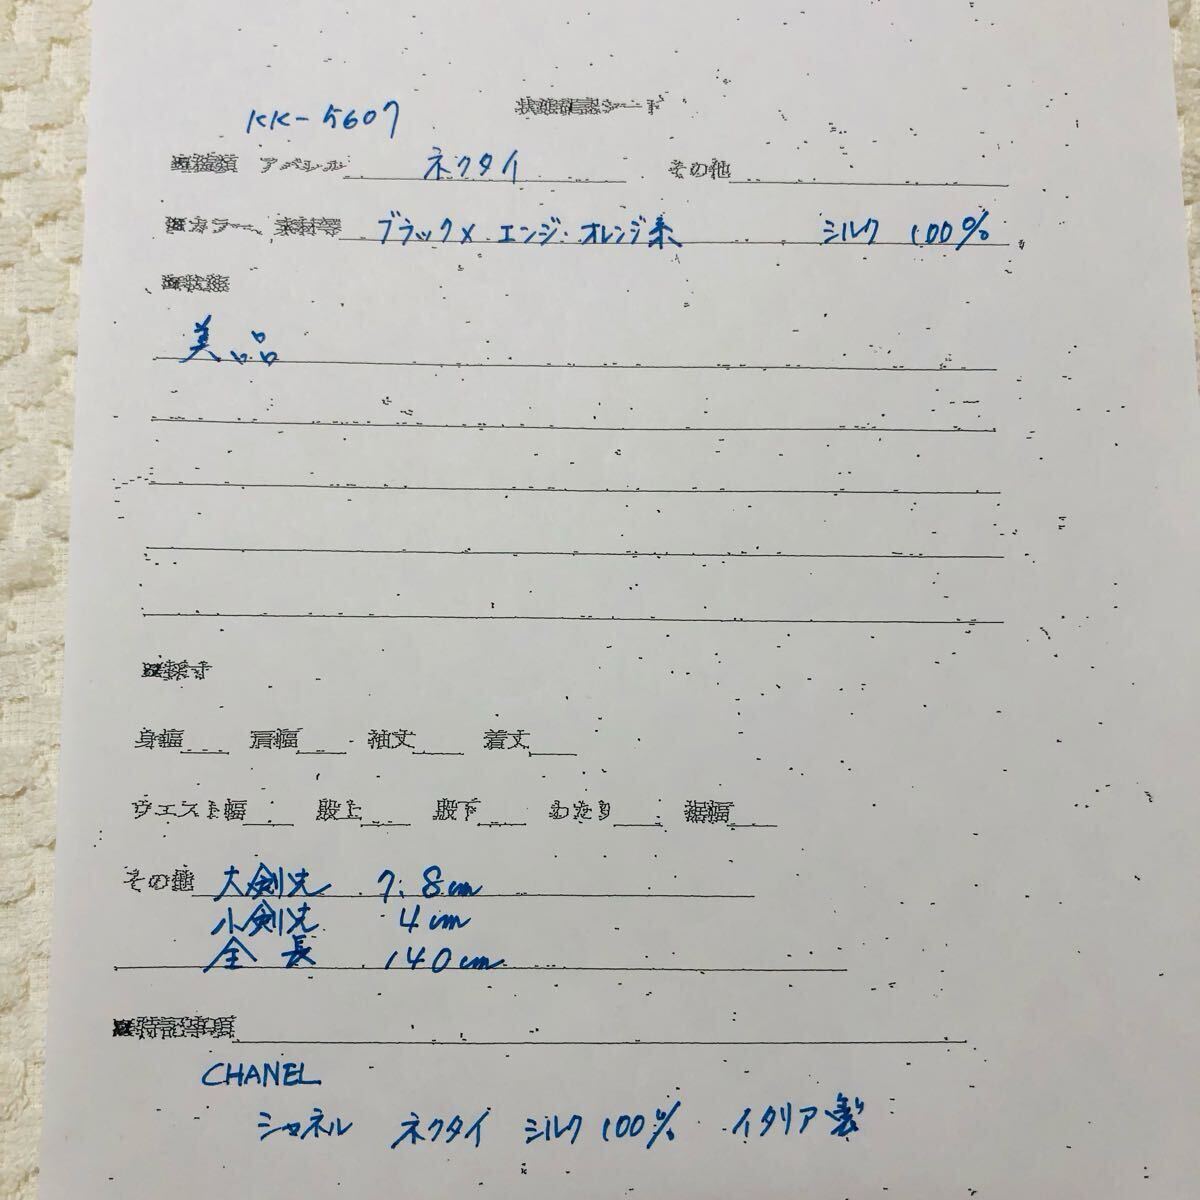 状態確認シート
KK-5607
■種類 アパレル ネクタイ その他
■カラー、素材等 ブラック× エンジ・オレンジ系 シルク 100%
■状態
美品
■採寸
身幅 肩幅 袖丈 着丈
ウエスト幅 股上 股下 わたり 裾幅
その他 大剣先 7.8cm
小剣先 4cm
全長 140cm
■特記事項
CHANEL
シャネル ネクタイ シルク100% イタリア製